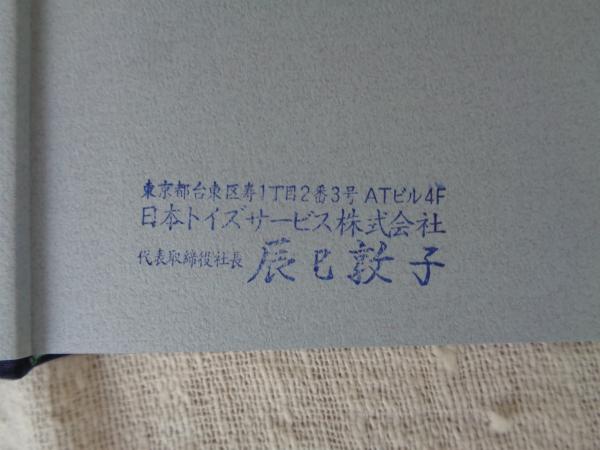 東京都台東区寿1丁目2番3号 ATビル4F
日本トイズサービス株式会社
代表取締役社長 辰巳敦子